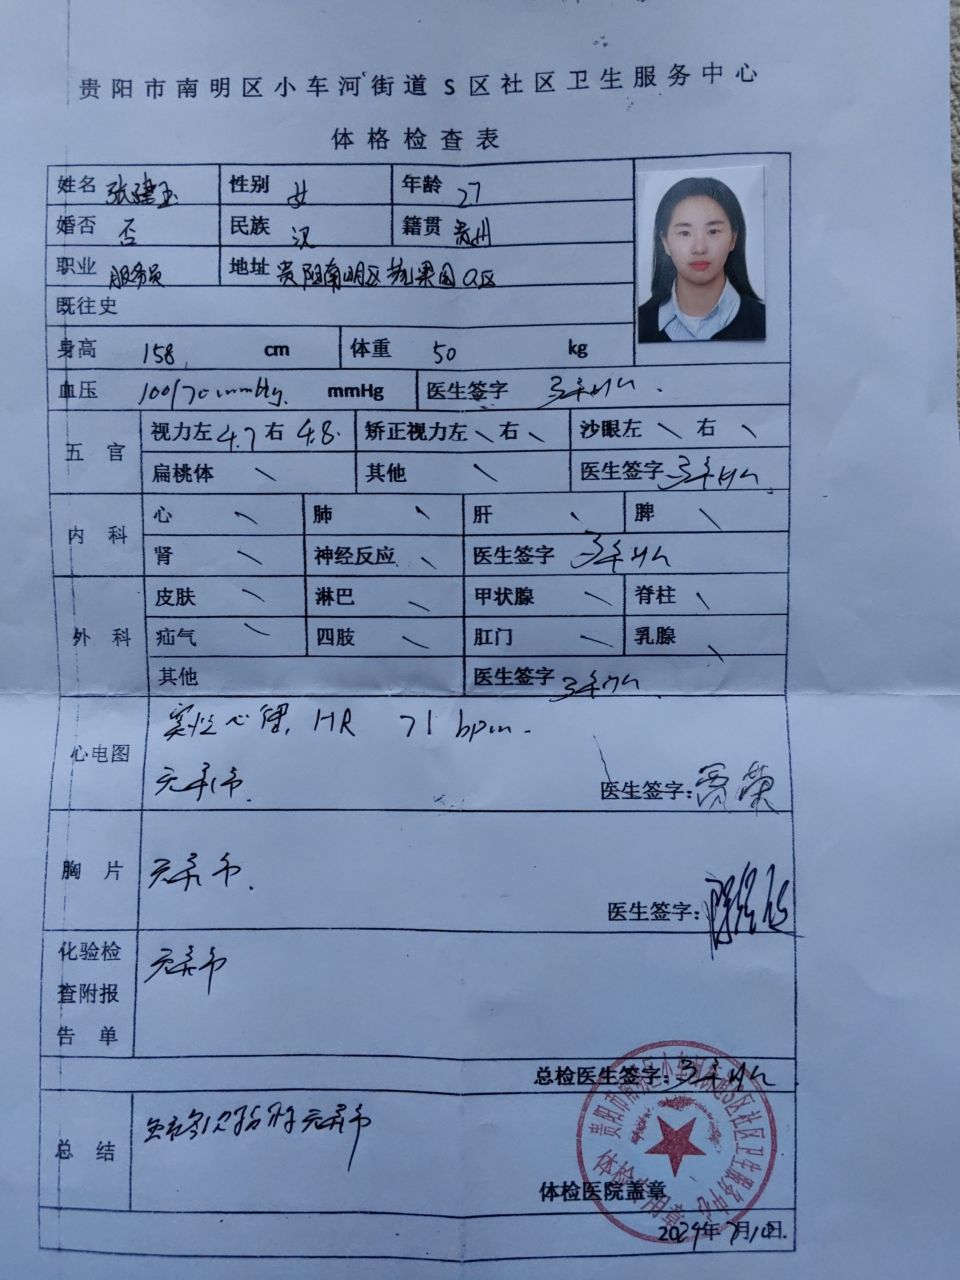 贵阳市南明区小车河街道S区社区卫生服务中心
体格检查表
姓名 张建玉 性别 女 年龄 27
婚否 否 民族 汉 籍贯 贵州
职业 服务员 地址 贵阳南明区 花果园Q区
既往史
身高 158 cm 体重 50 kg
血压 100/70mmHg. mmHg 医生签字
五官 视力左 4.7 右 4.8 矫正视力左 \ 右 \ 沙眼左 \ 右 \
扁桃体 \ 其他 \ 医生签字
内科 心 \ 肺 \ 肝 \ 脾 \
肾 \ 神经反应 \ 医生签字
外科 皮肤 \ 淋巴 \ 甲状腺 \ 脊柱 \
疝气 \ 四肢 \ 肛门 \ 乳腺 \
其他 医生签字
心电图 窦性心律, HR 71 bpm.
无异常. 医生签字:
胸片 无异常. 医生签字:
化验检查附报告单 无异常
总检医生签字:
总结 无异常
体检医院盖章
贵阳市南明区小车河街道S区社区卫生服务中心
体检专用章
2024年7月10日